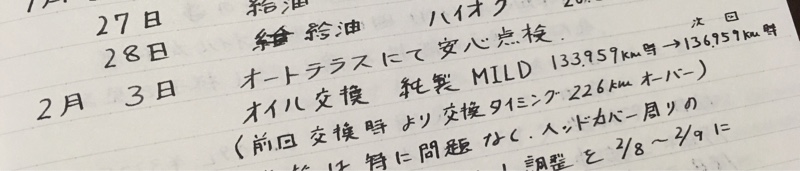 27日 給油
28日 給油 ハイオク
2月 3日 オートテラスにて安心点検.
次回
オイル交換 純製 MILD 133,959km時→136,959km時
(前回交換時より交換タイミング226kmオーバー)
は特に問題なく、ヘッドカバー周りの
調整を2/8~2/9に